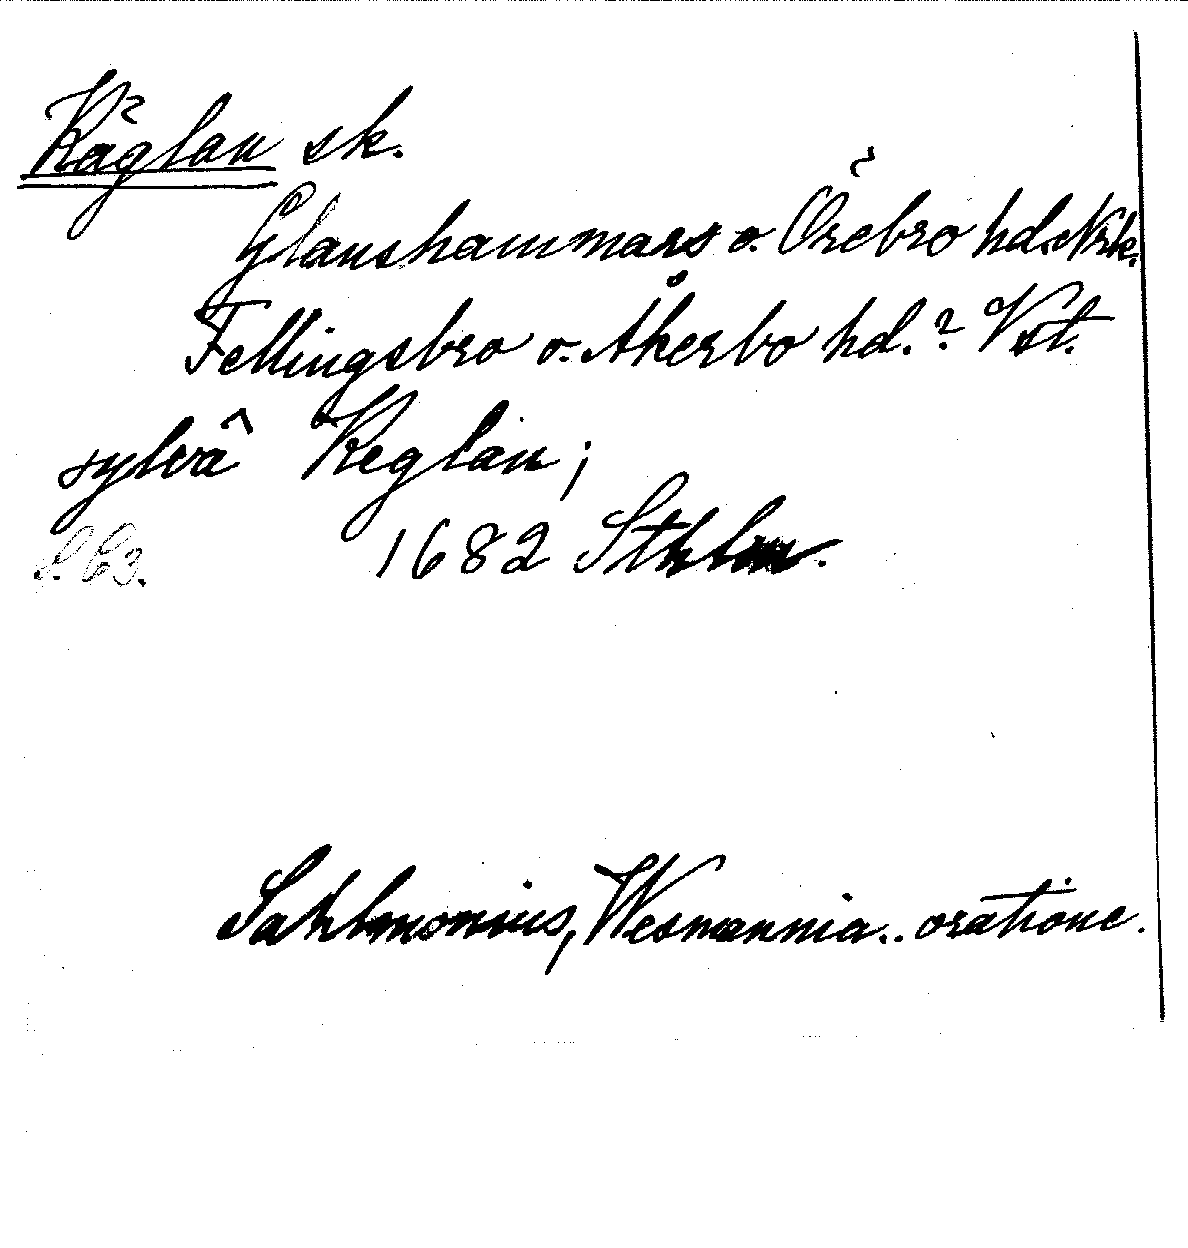 Käglan sk.
Glanshammars o. Örebro hd. Nrk.
Fellingsbro o. Åkerbo hd.? Vst.
sylvâ Keglan;
1682 Sthlm.
Sahlmonius, Wesmannia.. oratione.